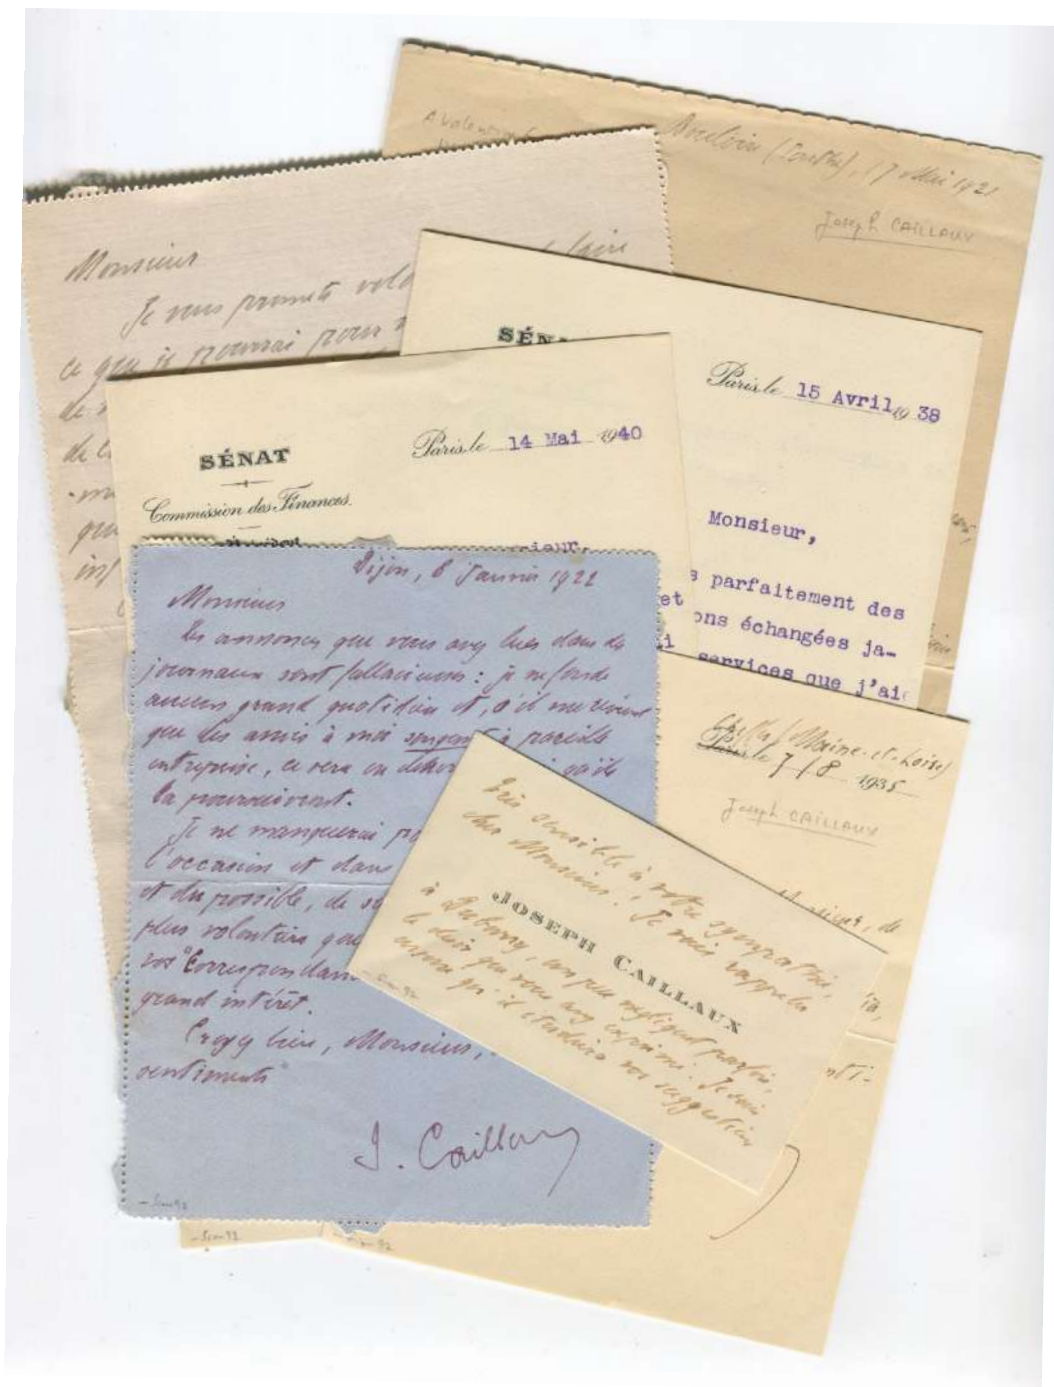 17 Mai 1921
Joseph CAILLAUX
Monsieur
Je vous promets
faire
ce que je pourrai pour
de
qu
SÉN
Paris, le 15 Avril 1938
Monsieur,
s parfaitement des
ons échangées ja-
services que j'aie
SÉNAT
Commission des Finances.
Paris, le 14 Mai 1940
sieur,
et
Dijon, 8 Janvier 1922
Monsieur
Les annonces que vous avez lues dans les
journaux sont fallacieuses : je ne fonde
aucun grand quotidien et, s'il me revient
que des amis à moi songent à pareille
entreprise, ce sera en dehors
qu'ils
la poursuivront.
Je ne manquerai
l'occasion et dans
et du possible, de
plus volontiers que
vos "Correspondan
grand intérêt.
Croyez bien, Monsieur,
sentiments
J. Caillaux
(Maine-et-Loire)
Paris, le 7/8 1935
Joseph CAILLAUX
, de
nti-
Très sensible à votre sympathie,
cher Monsieur. Je vais rappeler
JOSEPH CAILLAUX
à Dubarry, un peu négligent parfois,
le désir que vous avez exprimé. Je suis
assuré qu'il étudiera vos suggestions